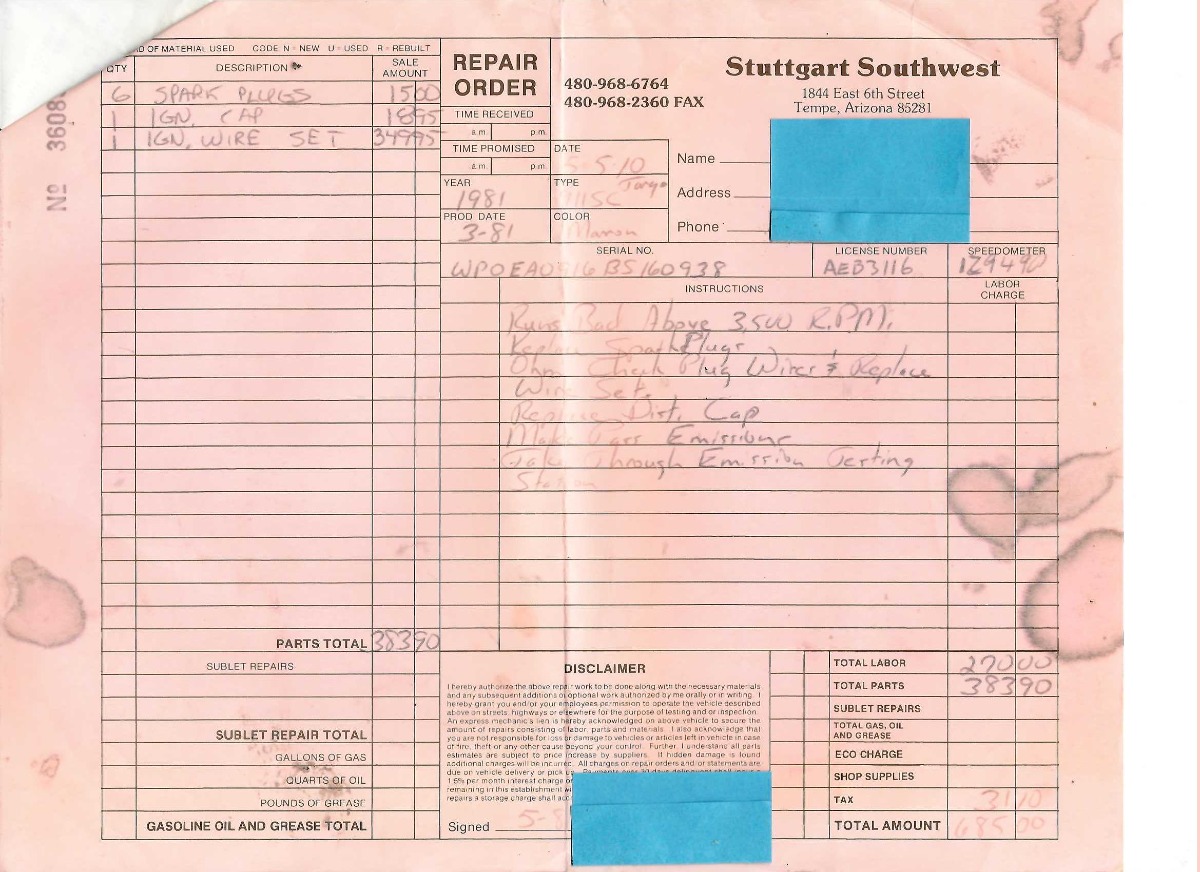 D OF MATERIAL USED CODE N - NEW U - USED R - REBUILT
QTY DESCRIPTION SALE AMOUNT
6 SPARK PLUGS 15 00
1 IGN. CAP 18 95
1 IGN. WIRE SET 349 95
PARTS TOTAL 383 90
SUBLET REPAIRS
SUBLET REPAIR TOTAL
GALLONS OF GAS
QUARTS OF OIL
POUNDS OF GREASE
GASOLINE OIL AND GREASE TOTAL
Nº 3608
REPAIR
ORDER
480-968-6764
480-968-2360 FAX
Stuttgart Southwest
1844 East 6th Street
Tempe, Arizona 85281
TIME RECEIVED
a.m. p.m.
TIME PROMISED
a.m. p.m.
DATE
5-10
YEAR
1981
TYPE
911SC Targa
PROD DATE
3-81
COLOR
Maron
Name
Address
Phone
SERIAL NO.
WPOEA0916BS160938
LICENSE NUMBER
AEB3116
SPEEDOMETER
129490
INSTRUCTIONS
LABOR
CHARGE
Runs Bad Above 3,500 R.P.M.
Replace Spark Plugs
Ohm Check Plug Wires & Replace
Wire Set.
Replace Dist. Cap
Make Pass Emissions
Take Through Emission Testing
Station
DISCLAIMER
I hereby authorize the above repair work to be done along with the necessary materials
and any subsequent additions or optional work authorized by me orally or in writing. I
hereby grant you and/or your employees permission to operate the vehicle described
above on streets, highways or elsewhere for the purpose of testing and/or inspection.
An express mechanic's lien is hereby acknowledged on above vehicle to secure the
amount of repairs consisting of labor, parts and materials. I also acknowledge that
you are not responsible for loss or damage to vehicles or articles left in vehicle in case
of fire, theft or any other cause beyond your control. Further, I understand all parts
estimates are subject to price increase by suppliers. If hidden damage is found
additional charges will be incurred. All charges or repair orders and/or statements are
due on vehicle delivery or pick up.
1.5% per month interest charge
remaining in this establishment
repairs a storage charge shall
Signed 5-
TOTAL LABOR 270 00
TOTAL PARTS 383 90
SUBLET REPAIRS
TOTAL GAS, OIL
AND GREASE
ECO CHARGE
SHOP SUPPLIES
TAX 31 10
TOTAL AMOUNT 685 00